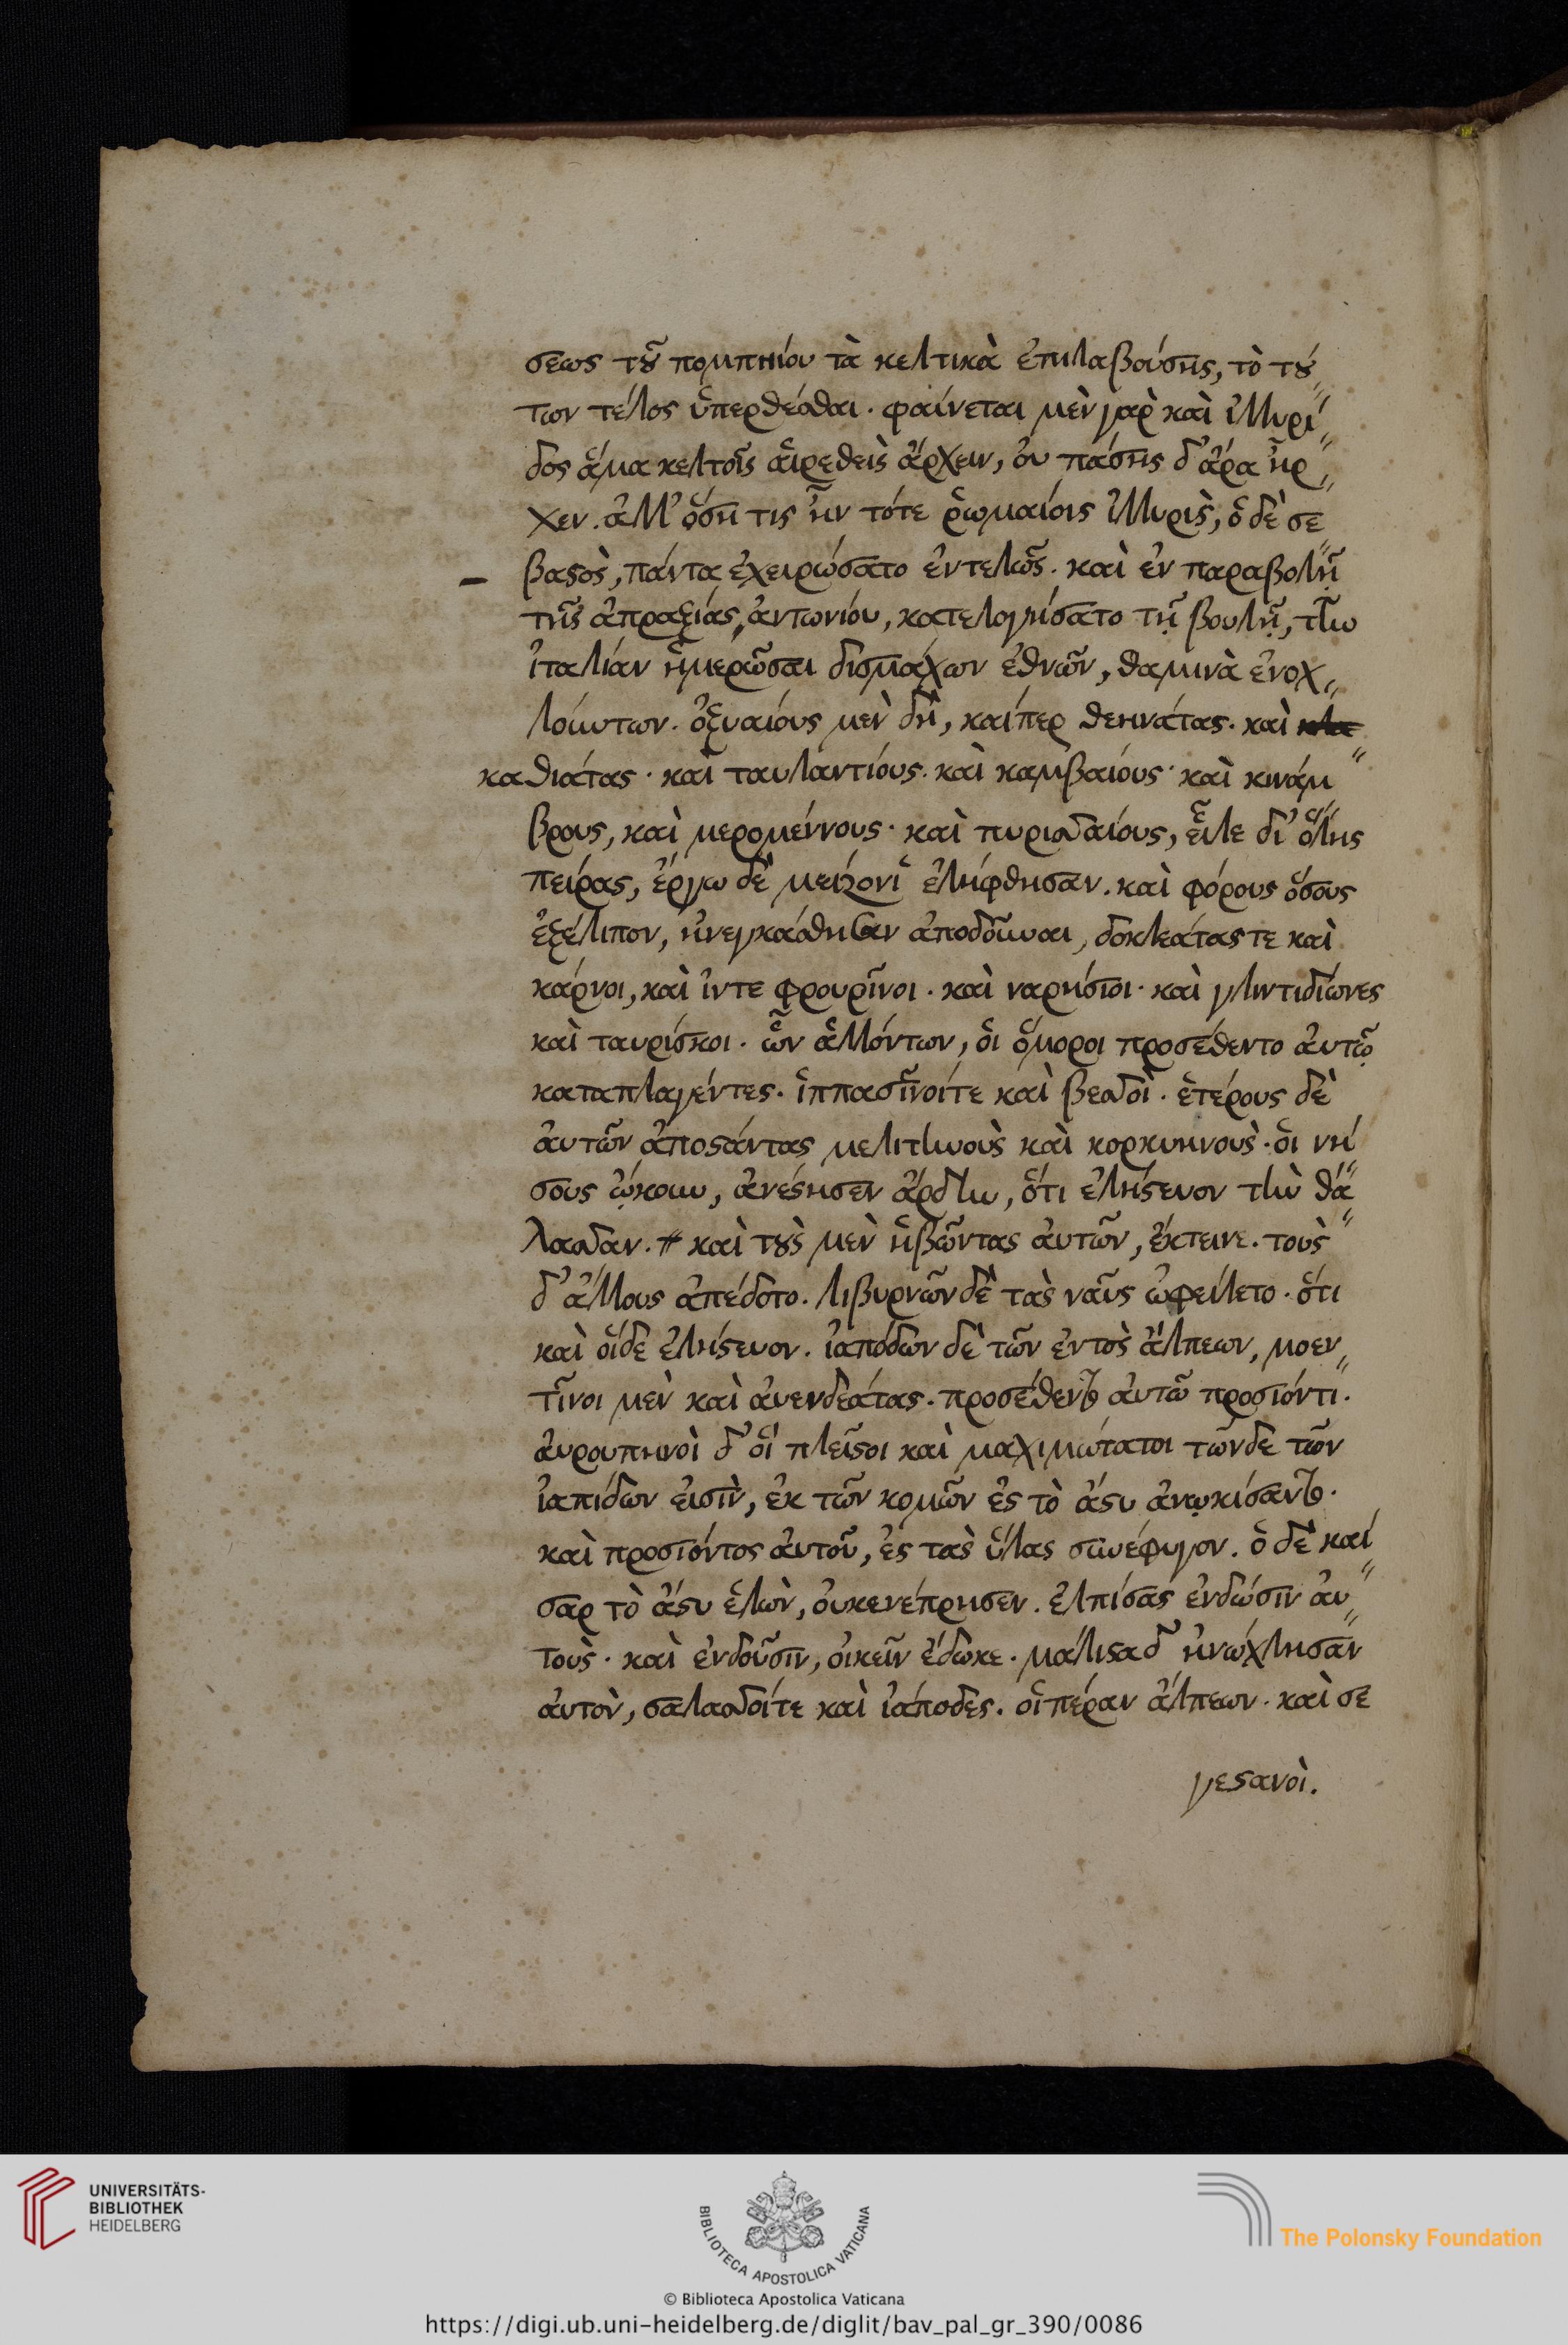 σεως τοῦ πομπηίου τὰ κελτικὰ ἐπιλαβούσης, τὸ τού
των τέλος ὑπερθέσθαι. φαίνεται μὲν γὰρ καὶ ἰλλυρί
δος ἅμα κελτοῖς αἱρεθεὶς ἄρχειν, οὐ πάσης δ' ἄρα ἦρ
χεν. ἀλλ' ὅση τις ἦν τότε ῥωμαίοις ἰλλυρὶς, ὁ δὲ σε
βαστὸς, πάντα ἐχειρώσατο ἐντελῶς. καὶ ἐν παραβολῇ
τῆς ἀπραξίας, ἀντωνίου, κατελογίσατο τῇ βουλῇ, τὴν
ἰταλίαν ἡμερῶσαι δισμάχων ἐθνῶν, θαμινὰ ἐνοχ
λούντων. ὀξυαίους μὲν δὴ, καίπερ θεηνάτας. καὶ
καθιάτας. καὶ ταυλαντίους. καὶ καμβαίους. καὶ κινάμ
βρους, καὶ μερομέννους. καὶ πυρισσαίους, εἷλε δι' ὅλης
πείρας, ἔργω δὲ μείζονι ἐλήφθησαν. καὶ φόρους ὅσους
ἐξέλιπον, ἠνεγκάσθησαν ἀποδοῦναι, δοκλεάτας τε καὶ
κάρνοι, καὶ ἰντε φρουρῖνοι. καὶ ναρήσιοι. καὶ γλιντιδίωνες
καὶ ταυρίσκοι. ὧν ἁλλόντων, οἱ ὅμοροι προσέθεντο αὐτῷ
καταπλαγέντες. ἱππασῖνοίτε καὶ βεσσοὶ. ἑτέρους δὲ
αὐτῶν ἀποστάντας μελιτηνοὺς καὶ κορκυηνοὺς. οἱ νή
σους ᾤκουν, ἀνέστησεν ἄρδην, ὅτι ἐλήστευον τὴν θά
λασσαν. καὶ τοὺς μὲν ἡβῶντας αὐτῶν, ἔκτεινε. τοὺς
δ' ἄλλους ἀπέδοτο. λιβυρνῶν δὲ τὰς ναῦς ὠφείλετο. ὅτι
καὶ οἵδε ἐλήστευον. ἰαπόδων δὲ τῶν ἐντὸς ἄλπεων, μοεν
τῖνοι μὲν καὶ ἀυενδεάτας. προσέθεντο αὐτῶ προσιόντι.
ἀυρουπηνοὶ δ' οἱ πλεῖστοι καὶ μαχιμώτατοι τῶνδε τῶν
ἰαπίδων εἰσὶν, ἐκ τῶν κομῶν ἐς τὸ ἄστυ ἀνῳκίσαντο.
καὶ προσιόντος αὐτοῦ, ἐς τὰς ὕλας συνέφυγον. ὁ δὲ καί
σαρ τὸ ἄστυ ἑλὼν, οὐκενέπρησεν. ἐλπίσας ἐνδώσιν αὐ
τοὺς. καὶ ἐνδοῦσιν, οἰκεῖν ἔδωκε. μάλιστα δ' ἠνώχλησαν
αὐτὸν, σαλασσοίτε καὶ ἰάποδες. οἱ πέραν ἄλπεων. καὶ σε
γεστανοὶ.
UNIVERSITÄTS-
BIBLIOTHEK
HEIDELBERG
BIBLIOTECA APOSTOLICA VATICANA
The Polonsky Foundation
© Biblioteca Apostolica Vaticana
https://digi.ub.uni-heidelberg.de/diglit/bav_pal_gr_390/0086